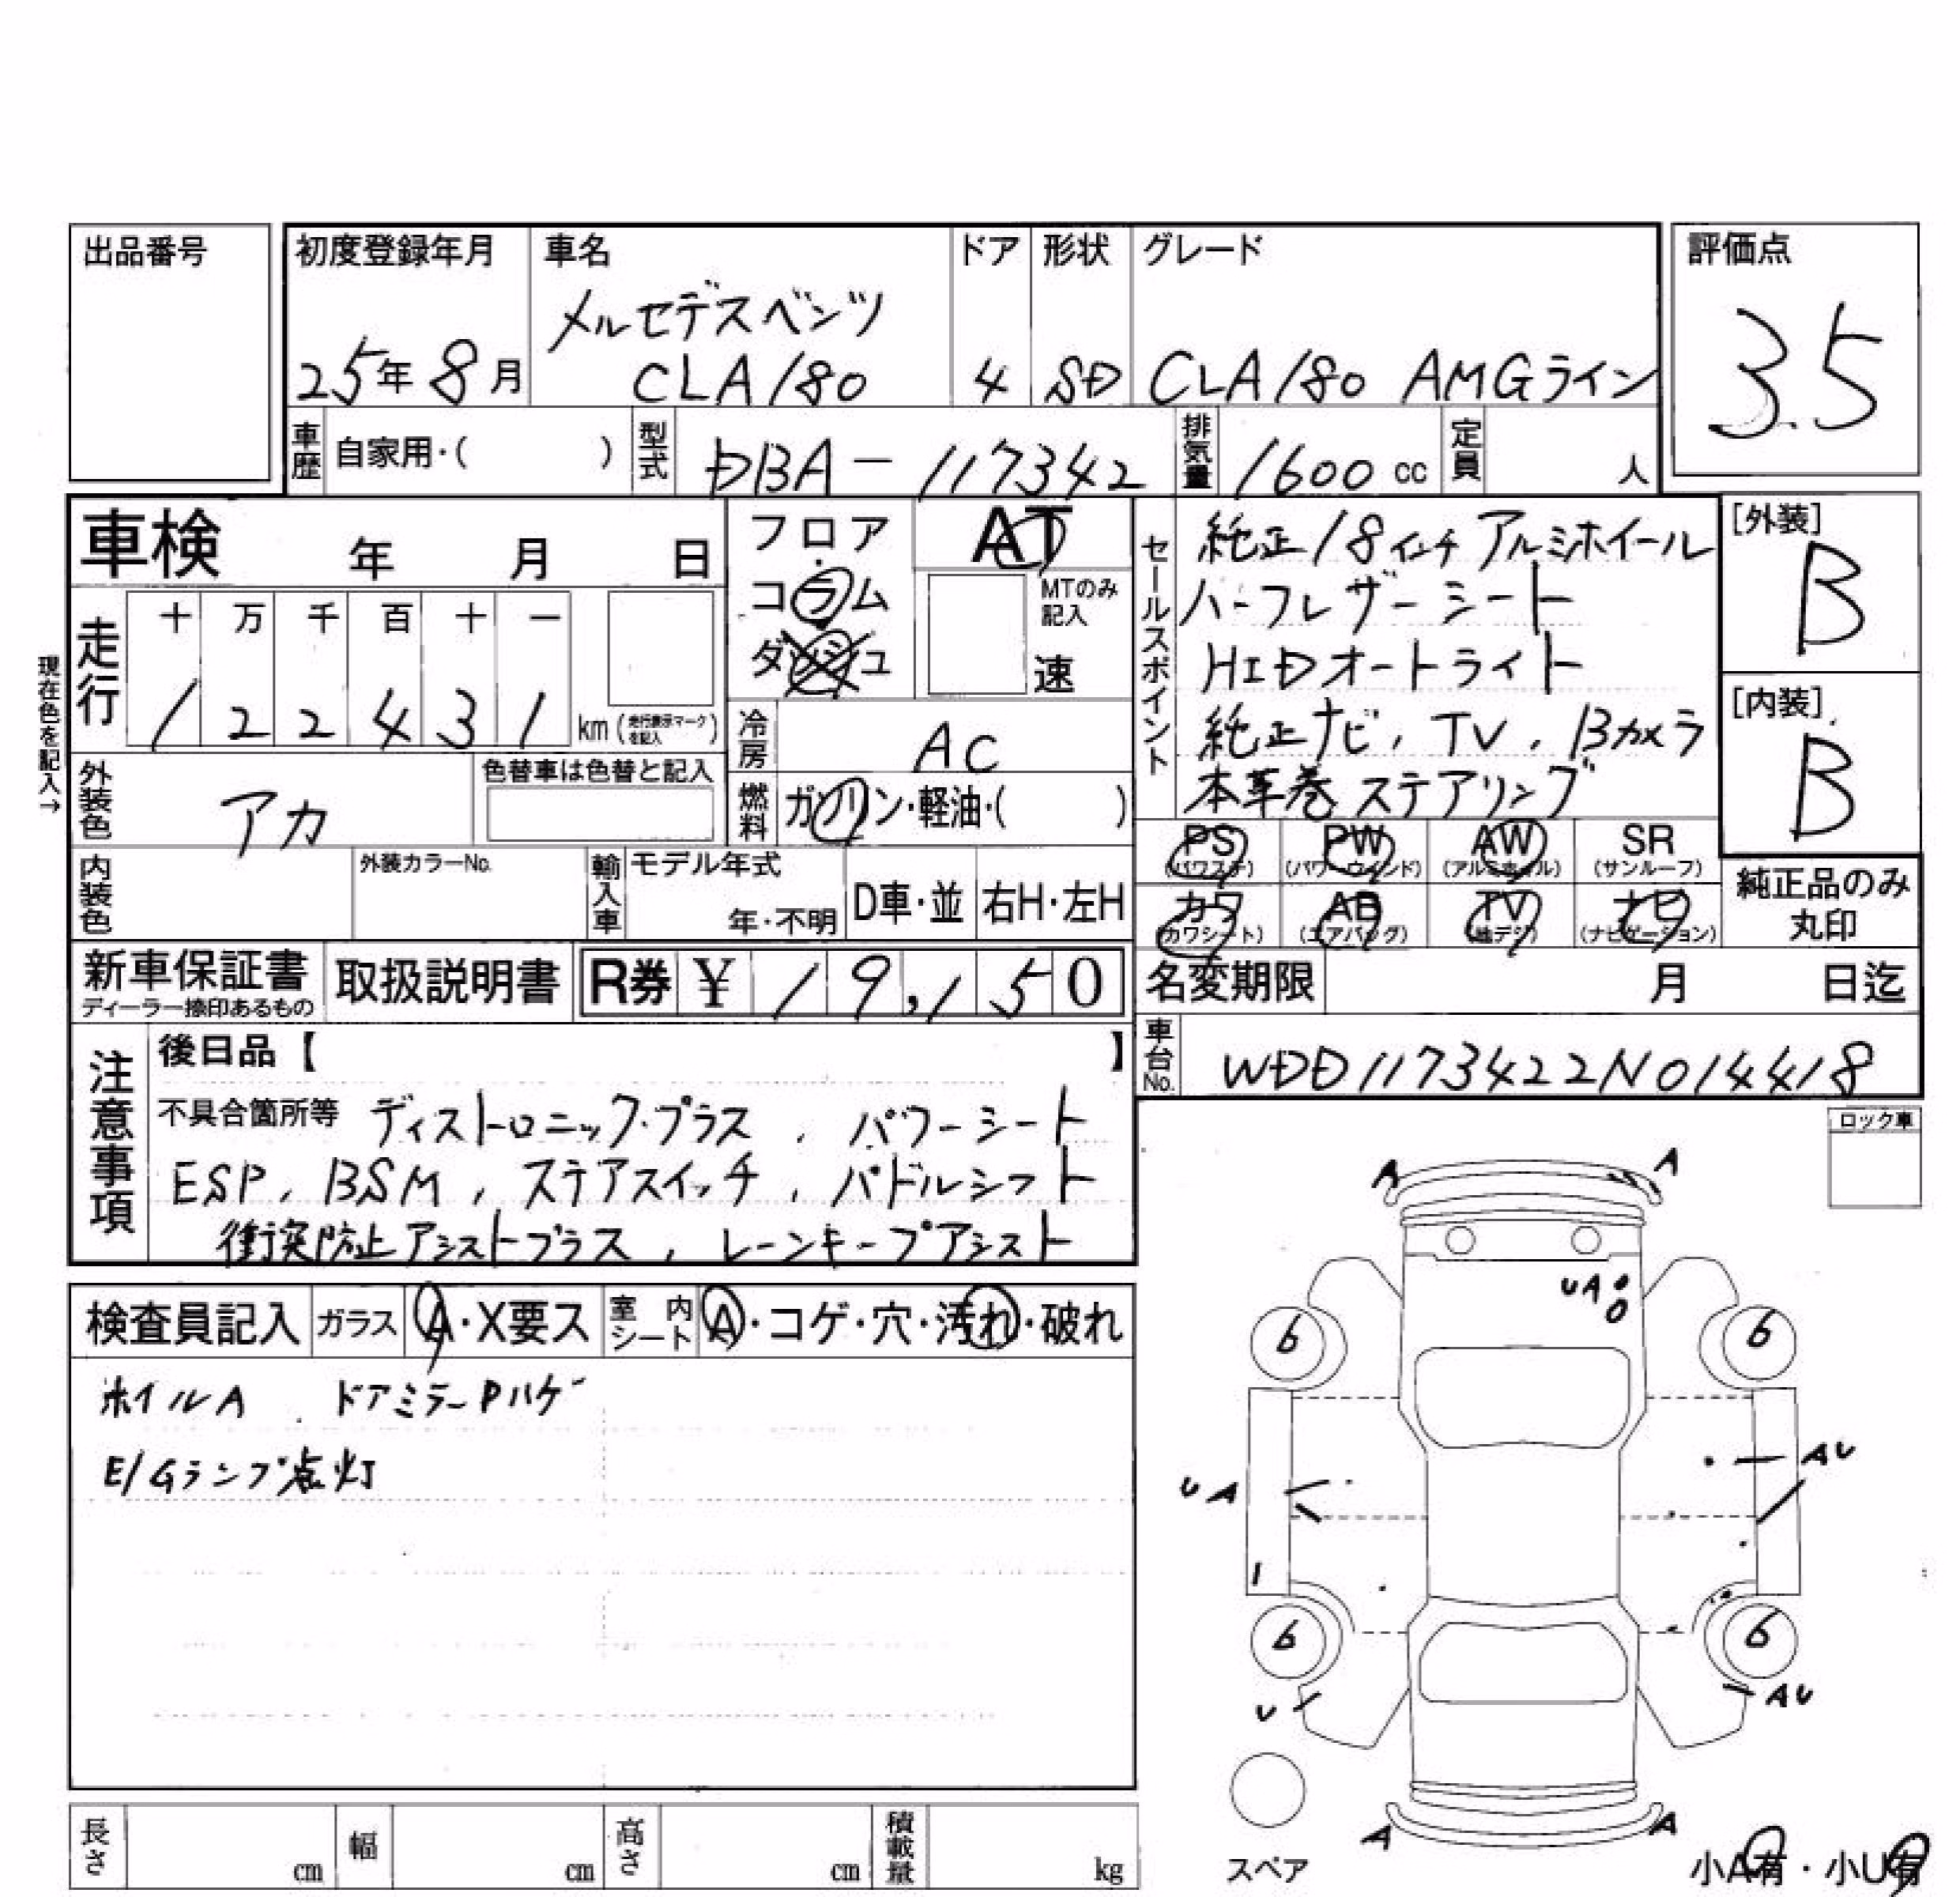 出品番号
初度登録年月 車名 ドア 形状 グレード 評価点
メルセデスベンツ
25年8月 CLA180 4 SD CLA180 AMGライン 3.5
車歴 自家用・( ) 型式 DBA-117342 排気量 1600cc 定員 人
車検 年 月 日
フロア・コラム
ダッシュ
AT
MTのみ記入
速
セールスポイント
純正18インチアルミホイール
ハーフレザーシート
HIDオートライト
純正ナビ, TV, Bカメラ
本革巻ステアリング
[外装]
B
[内装]
B
現在色を記入→
走行
十 万 千 百 十 一
1 2 2 4 3 1 km (走行表示マークを記入)
冷房 AC
外装色 アカ 色替車は色替と記入
燃料 ガソリン・軽油・( )
PS (パワステ) PW (パワーウインド) AW (アルミホイル) SR (サンルーフ)
カワ (カワシート) AB (エアバッグ) TV (地デジ) ナビ (ナビゲーション)
純正品のみ丸印
内装色 外装カラーNo. 輸入車 モデル年式 年・不明 D車・並 右H・左H
新車保証書 ディーラー捺印あるもの 取扱説明書 R券 ¥ 19,150
名変期限 月 日迄
車台No. WDD1173422N014418
注意事項
後日品【 】
不具合箇所等 ディストロニック・プラス, パワーシート
ESP, BSM, ステアスイッチ, パドルシフト
衝突防止アシストプラス, レーンキープアシスト
検査員記入 ガラス A・X要ス 室内シート A・コゲ・穴・汚れ・破れ
ホイルA ドアミラーPハゲ
E/Gランプ点灯
ロック車
A A
UA
6 6
AU
UA
6 6
U AU
A A
スペア
小A有・小U有
長さ cm 幅 cm 高さ cm 積載量 kg